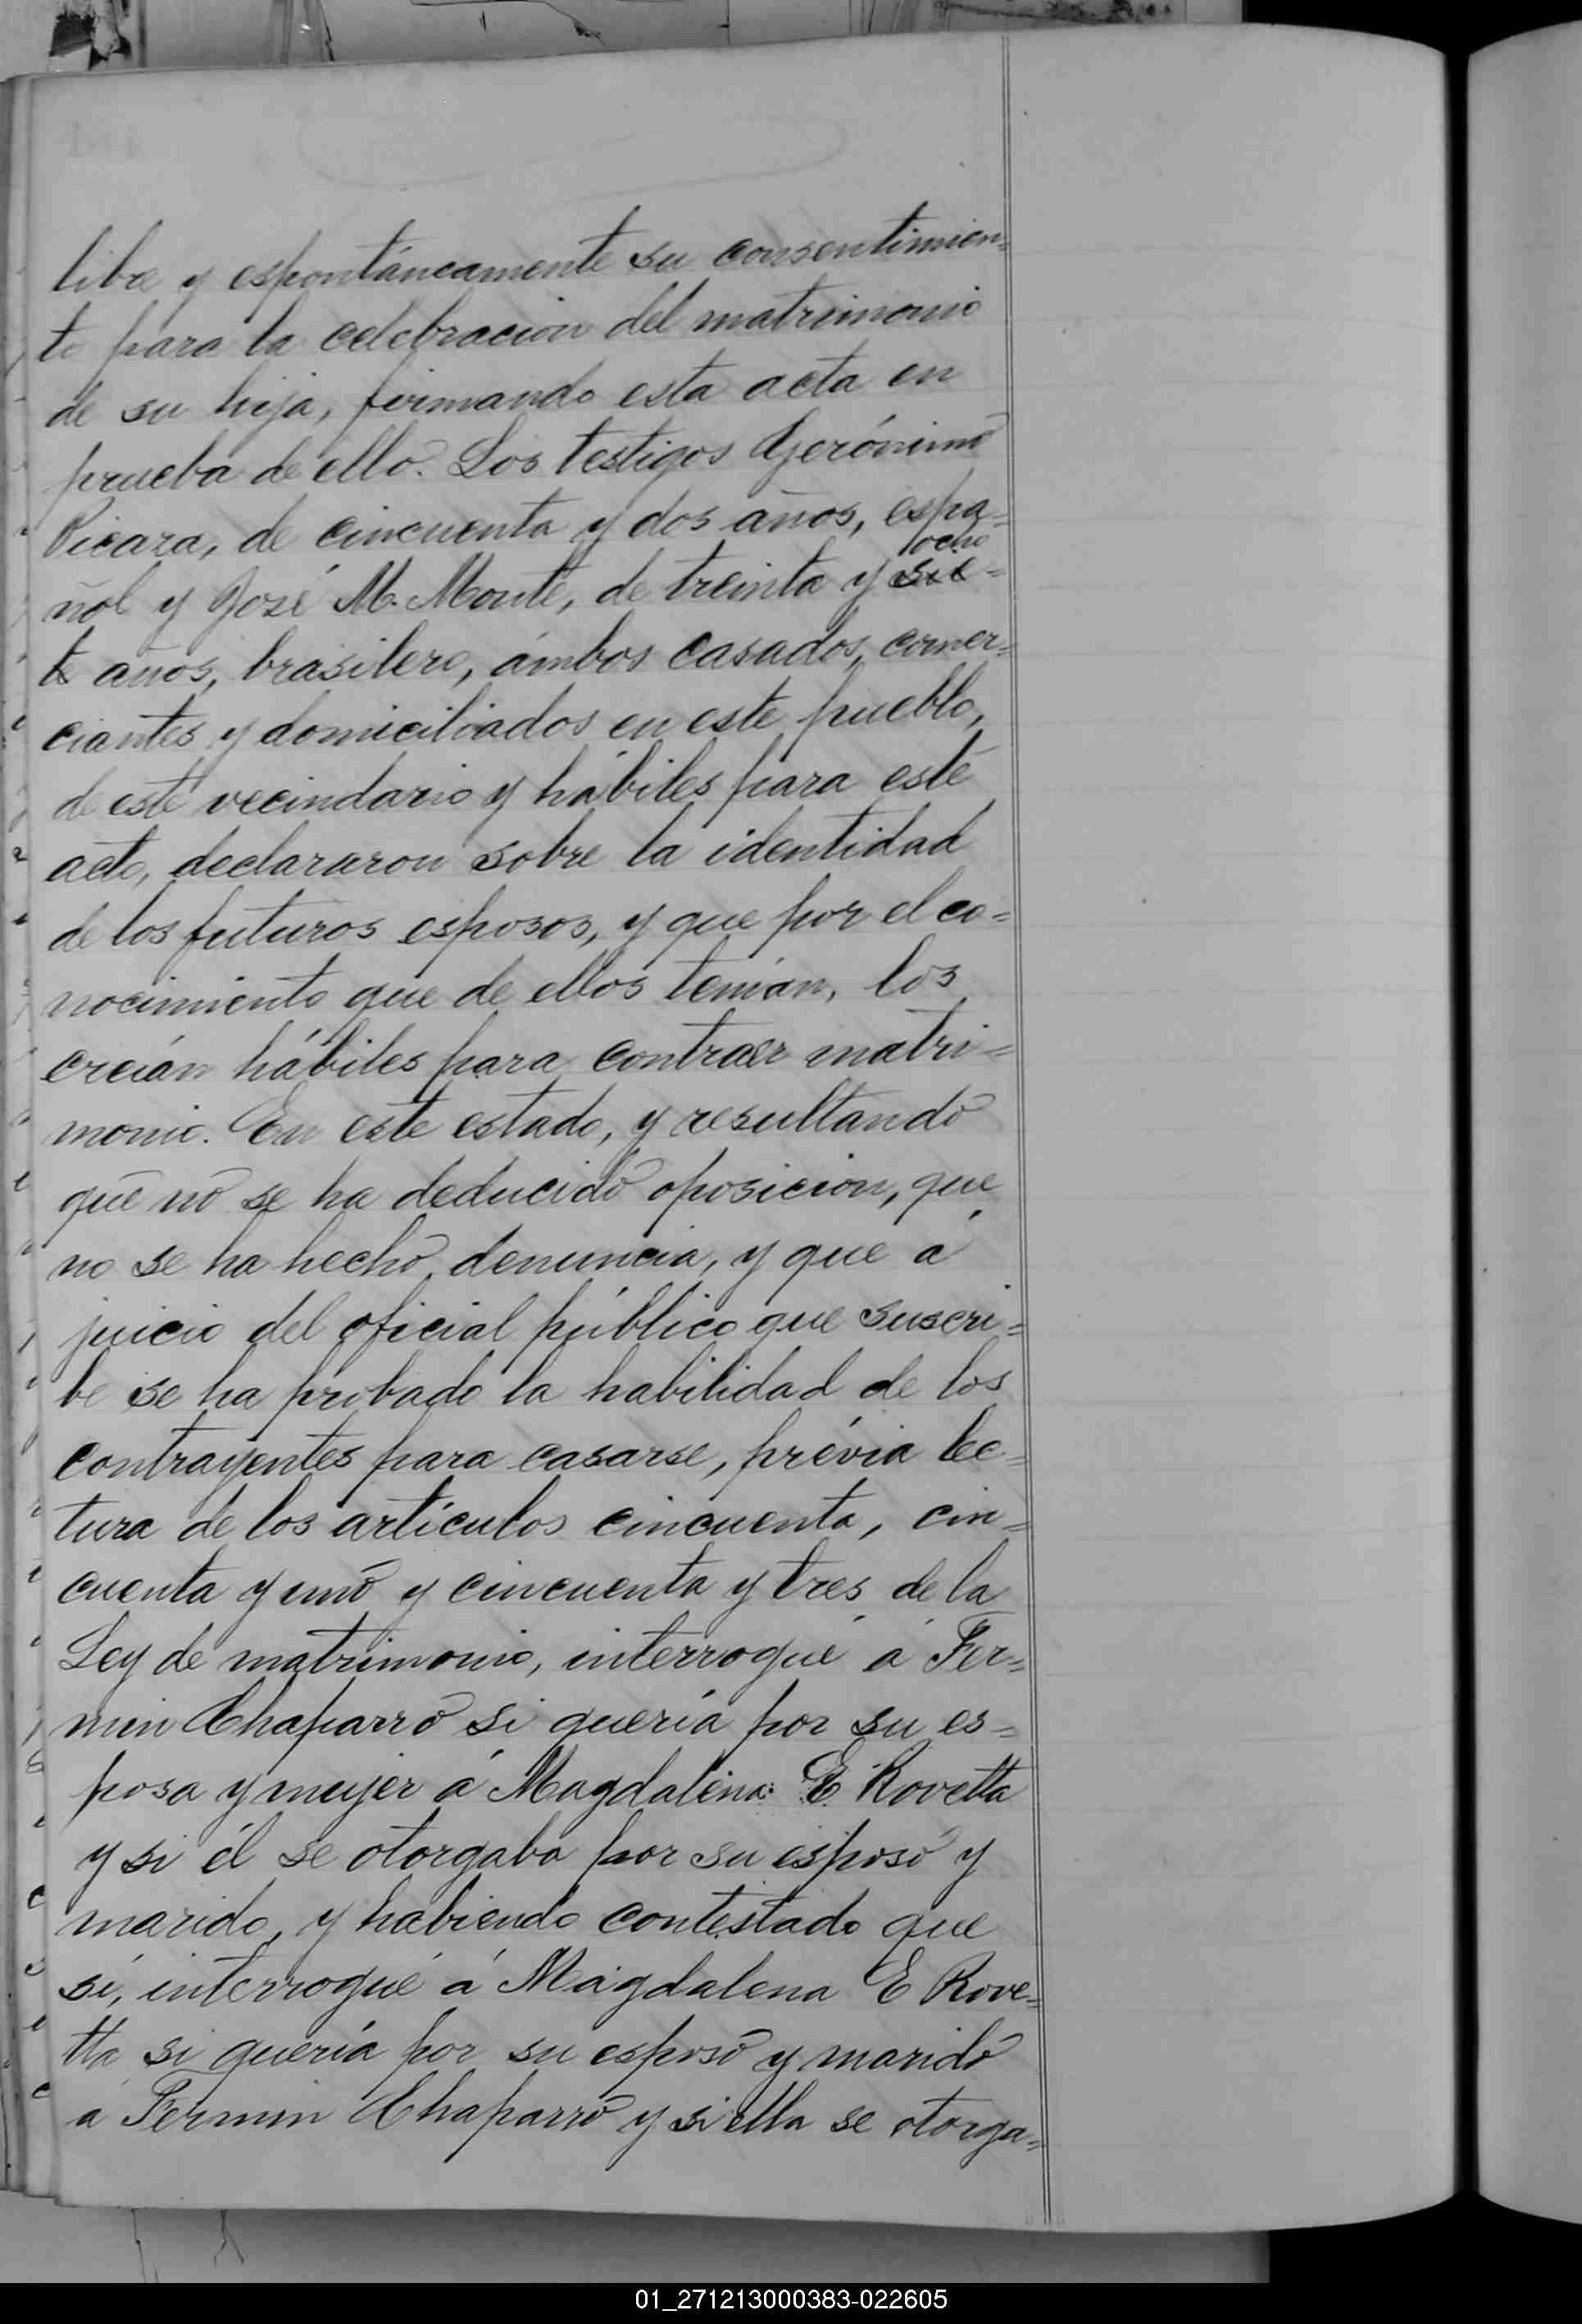 libre y espontáneamente su consentimien=
to para la celebracion del matrimonio
de su hija, firmando esta acta en
prueba de ello. Los testigos Gerónimo
Picaza, de cincuenta y dos años, espa=
ocho
ñol y José M. Monte, de treinta y sie=
te años, brasilero, ámbos casados, comer=
ciantes y domiciliados en este pueblo,
de este vecindario y hábiles para este
acto, declararon sobre la identidad
de los futuros esposos, y que por el co=
nocimiento que de ellos tenían, los
creían hábiles para contraer matri=
monio. En este estado, y resultando
que no se ha deducido oposicion, que
no se ha hecho denuncia, y que á
juicio del oficial público que suscri=
be se ha probado la habilidad de los
contrayentes para casarse, prévia lec=
tura de los artículos cincuenta, cin=
cuenta y uno y cincuenta y tres de la
Ley de matrimonio, interrogué á Fer=
min Chaparro si quería por su es=
posa y mujer á Magdalena E. Rovetta
y si él se otorgaba por su esposo y
marido, y habiendo contestado que
sí, interrogué á Magdalena E Rove=
tta si quería por su esposo y marido
á Fermin Chaparro y si ella se otorga=
01_271213000383-022605